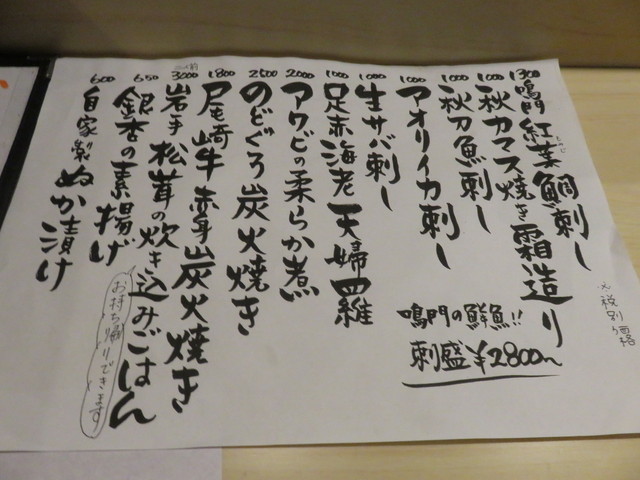 1300 鳴門紅葉鯛刺し
もみじ
1000 秋カマス焼き霜造り
1000 秋刀魚刺し
1000 アオリイカ刺し
1000 生サバ刺し
1000 足赤海老天婦羅
2000 アワビの柔らか煮
2500 のどぐろ炭火焼き
1800 尾崎牛赤身炭火焼き
二人前
3000 岩手松茸の炊き込みごはん
お持ち帰りできます
650 銀杏の素揚げ
600 自家製ぬか漬け
鳴門の鮮魚!!
刺盛¥2800〜
※税別価格